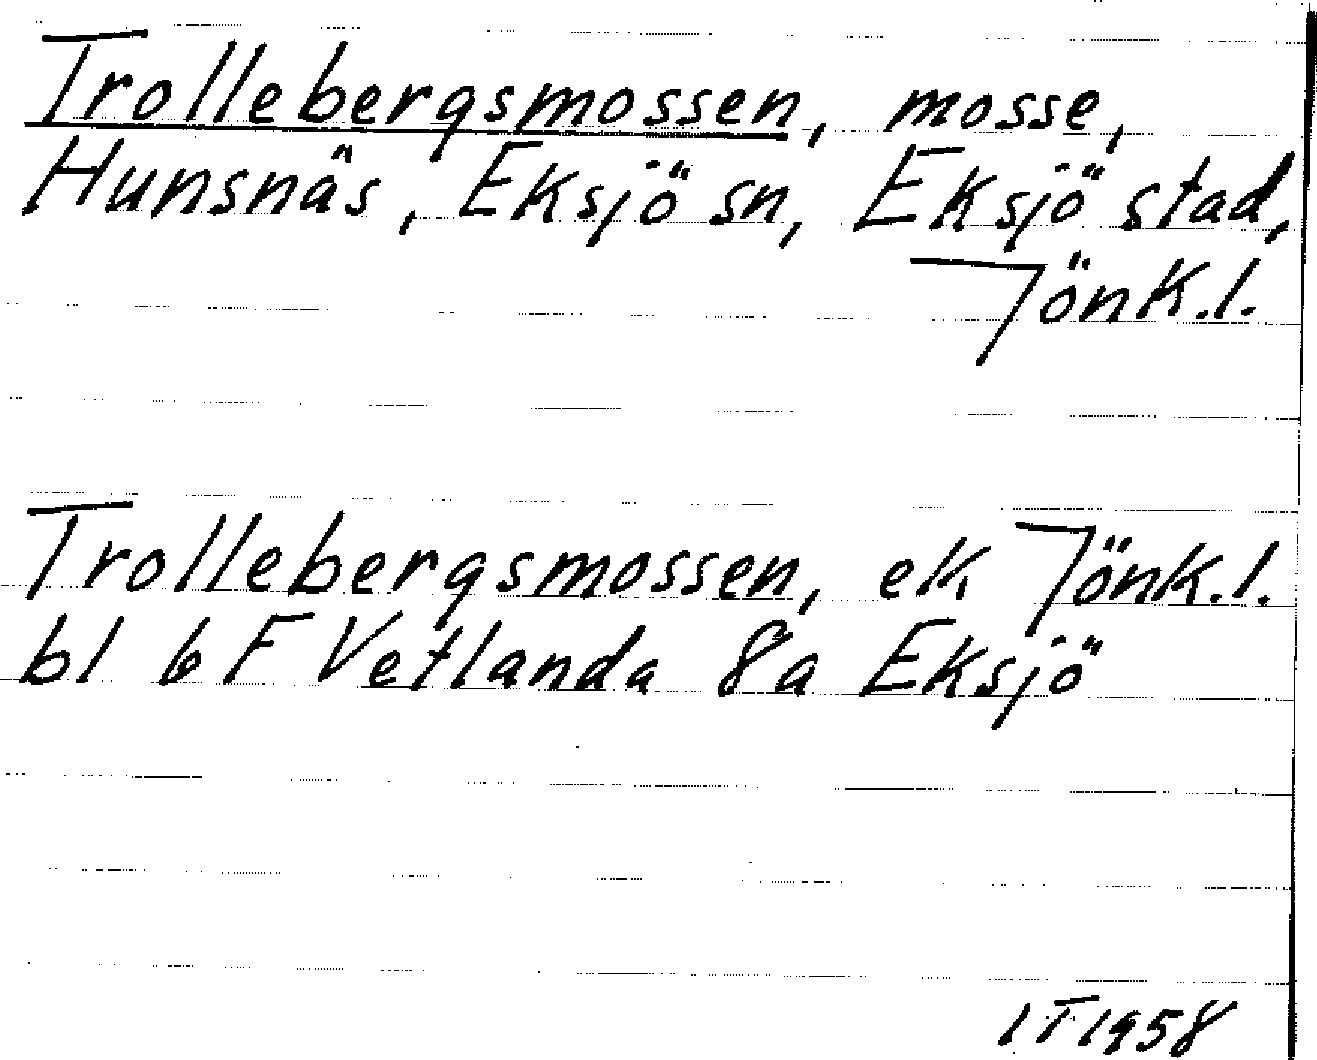 Trollebergsmossen, mosse,
Hunsnäs, Eksjö sn, Eksjö stad,
Jönk.l.
Trollebergsmossen, ek Jönk.l.
bl 6F Vetlanda 8a Eksjö
IT1958